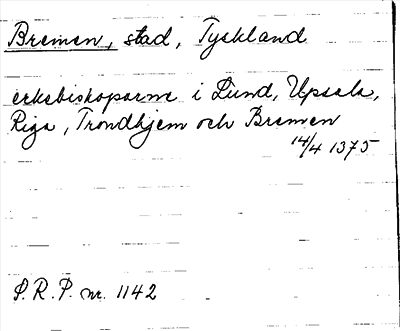 Bremen, stad, Tyskland
erkebiskoparne i Lund, Upsala,
Riga, Trondhjem och Bremen
14/4 1375
S.R.P. nr. 1142